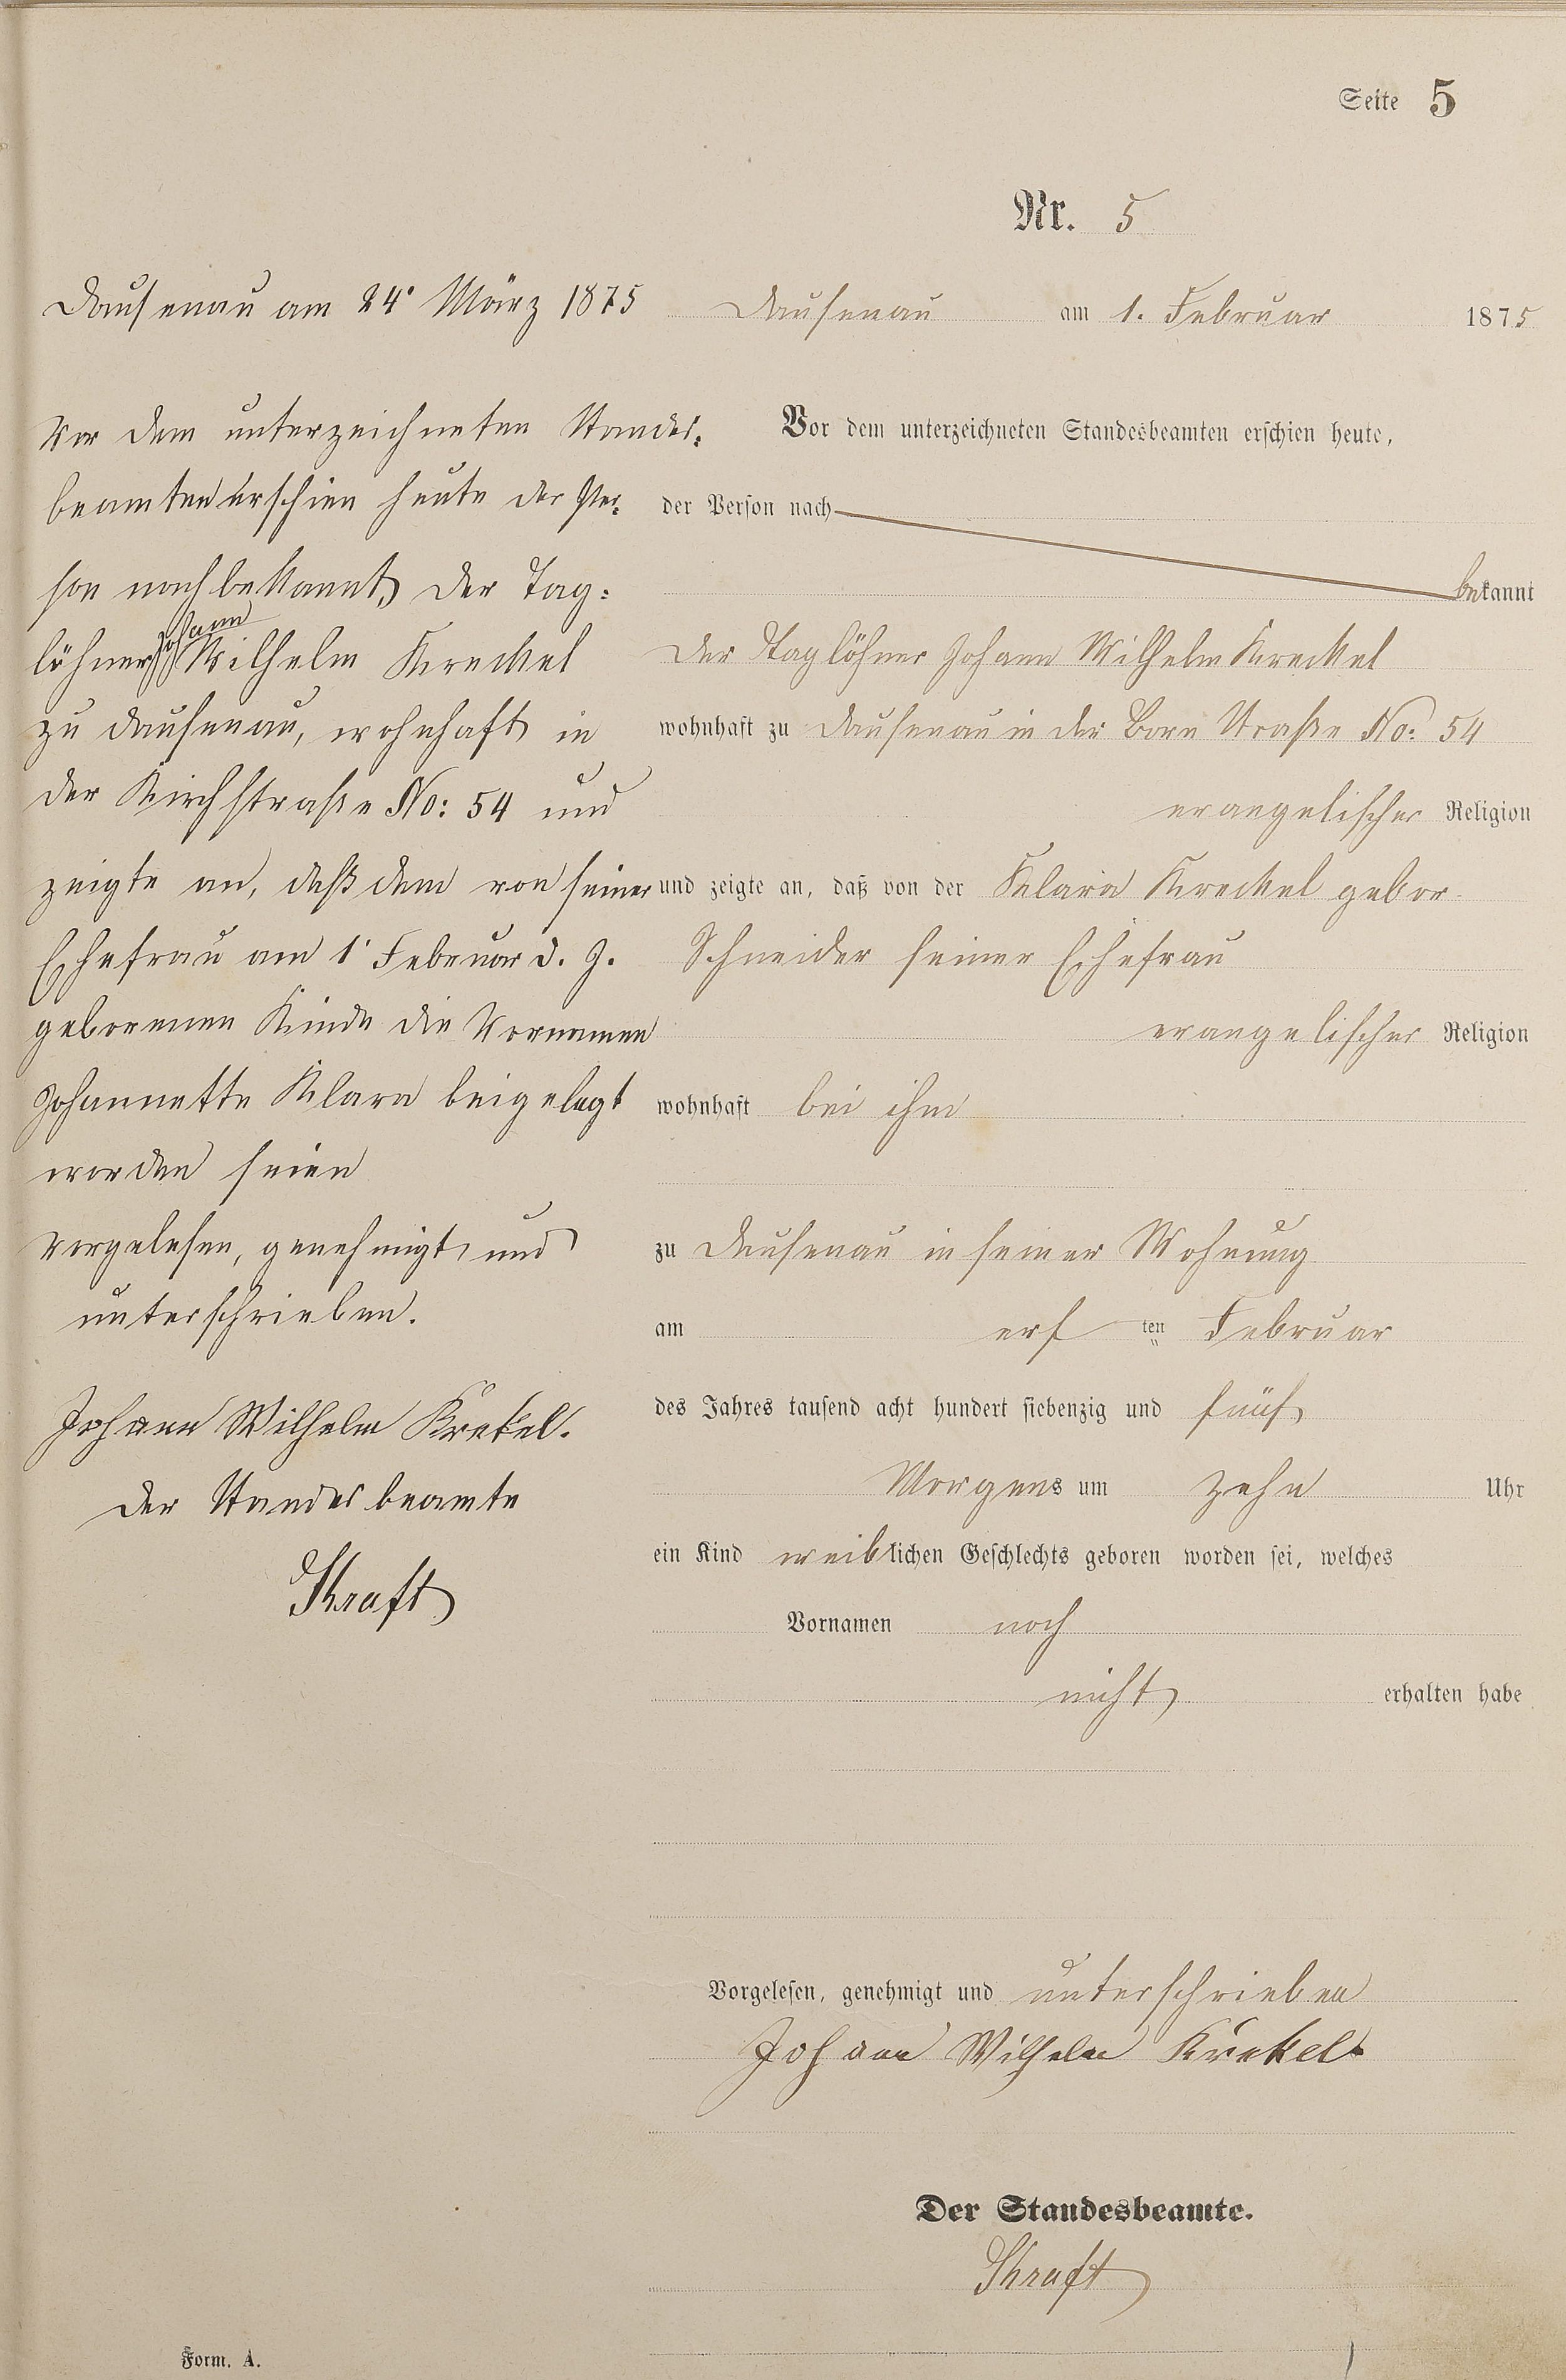 Seite 5
Nr. 5
Dausenau am 24' März 1875
Vor dem unterzeichneten Standes-
beamten erschien heute der Per-
son nach bekannt, der Tag-
löhner Johann Wilhelm Kreckel
zu Dausenau, wohnhaft in
der Kirchstraße No: 54 und
zeigte an, daß dem von seiner
Ehefrau am 1' Februar d. J.
geborenen Kinde die Vornamen
Johannette Klara beigelegt
worden seien
Vorgelesen, genehmigt und
unterschrieben.
Johann Wilhelm Krekel.
Der Standesbeamte
Dausenau am 1. Februar 1875
Vor dem unterzeichneten Standesbeamten erschien heute,
der Person nach
bekannt
Der Taglöhner Johann Wilhelm Kreckel
wohnhaft zu Dausenau in der Born Straße No: 54
evangelischer Religion
und zeigte an, daß von der Klara Kreckel gebor.
Schneider seiner Ehefrau
evangelischer Religion
wohnhaft bei ihm
zu Dausenau in seiner Wohnung
am ersten Februar
des Jahres tausend acht hundert siebenzig und fünf
Morgens um zehn Uhr
ein Kind weiblichen Geschlechts geboren worden sei, welches
Vornamen noch
nicht erhalten habe
Vorgelesen, genehmigt und unterschrieben
Johann Wilhelm Krekel.
Der Standesbeamte.
Form. A.